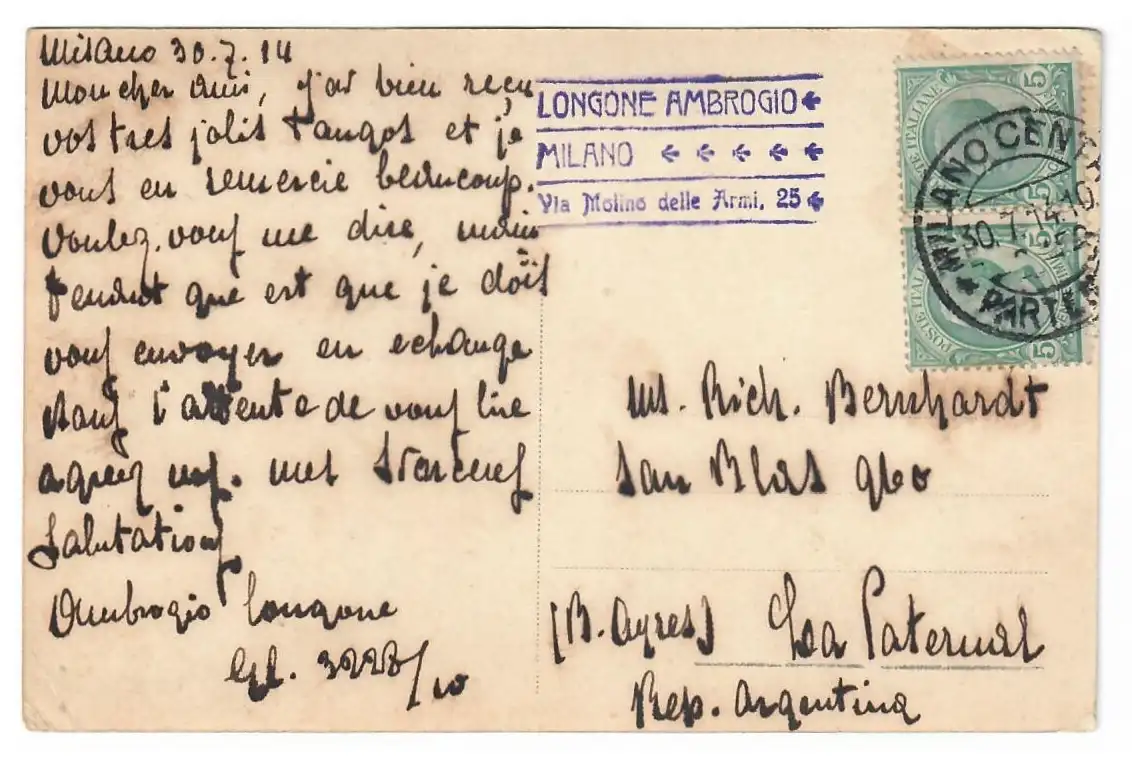 Milano 30.7.14
Mon cher ami, j'ai bien reçu
vos tres jolis tangos et je
vous en remercie beaucoup.
Voulez-vous me dire, main
tenant que est que je dois
vous envoyer en echange
dans l'attente de vous lire
agreez mes
salutations
Ambrogio Longone
LONGONE AMBROGIO
MILANO
Via Molino delle Armi, 25
POSTE ITALIANE 5
POSTE ITALIANE 5
MILANO CENTRO
30.7.14.10
PARTENZA
Mr. Rich. Bernhardt
San Blas 960
(B. Ayres) La Paternal
Rep. Argentina